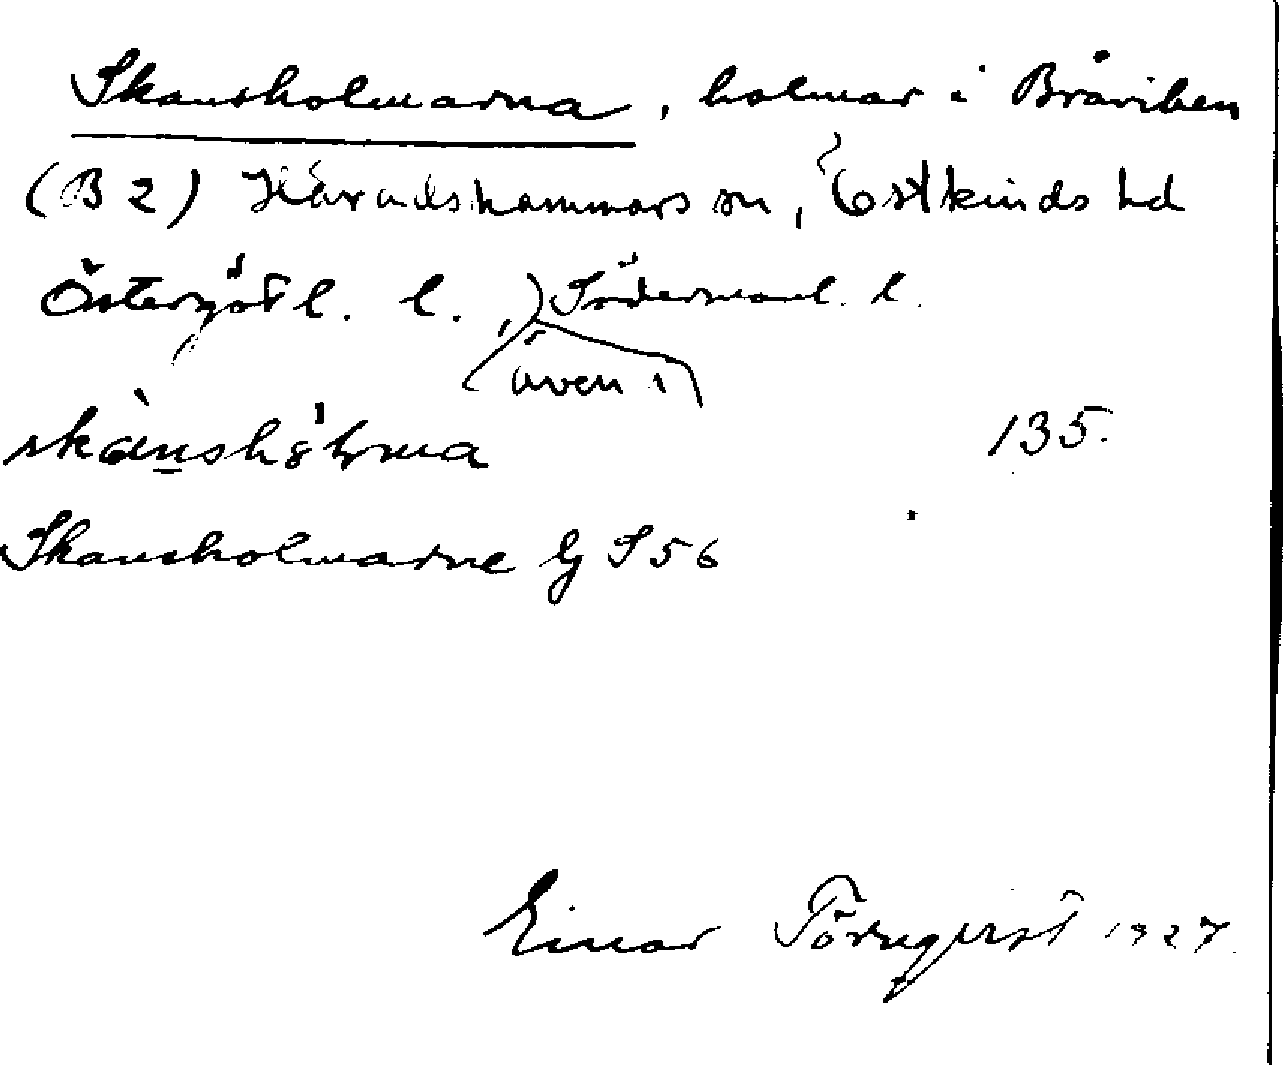 Skansholmarna, holmar i Bråviken
(B 2) Häradshammars sn, Östkinds hd
Östergötl. l., Södermanl. l.
även i
skànshólmna 135.
Skansholmarne Gj S 56
Einar Törnqvist 1927.